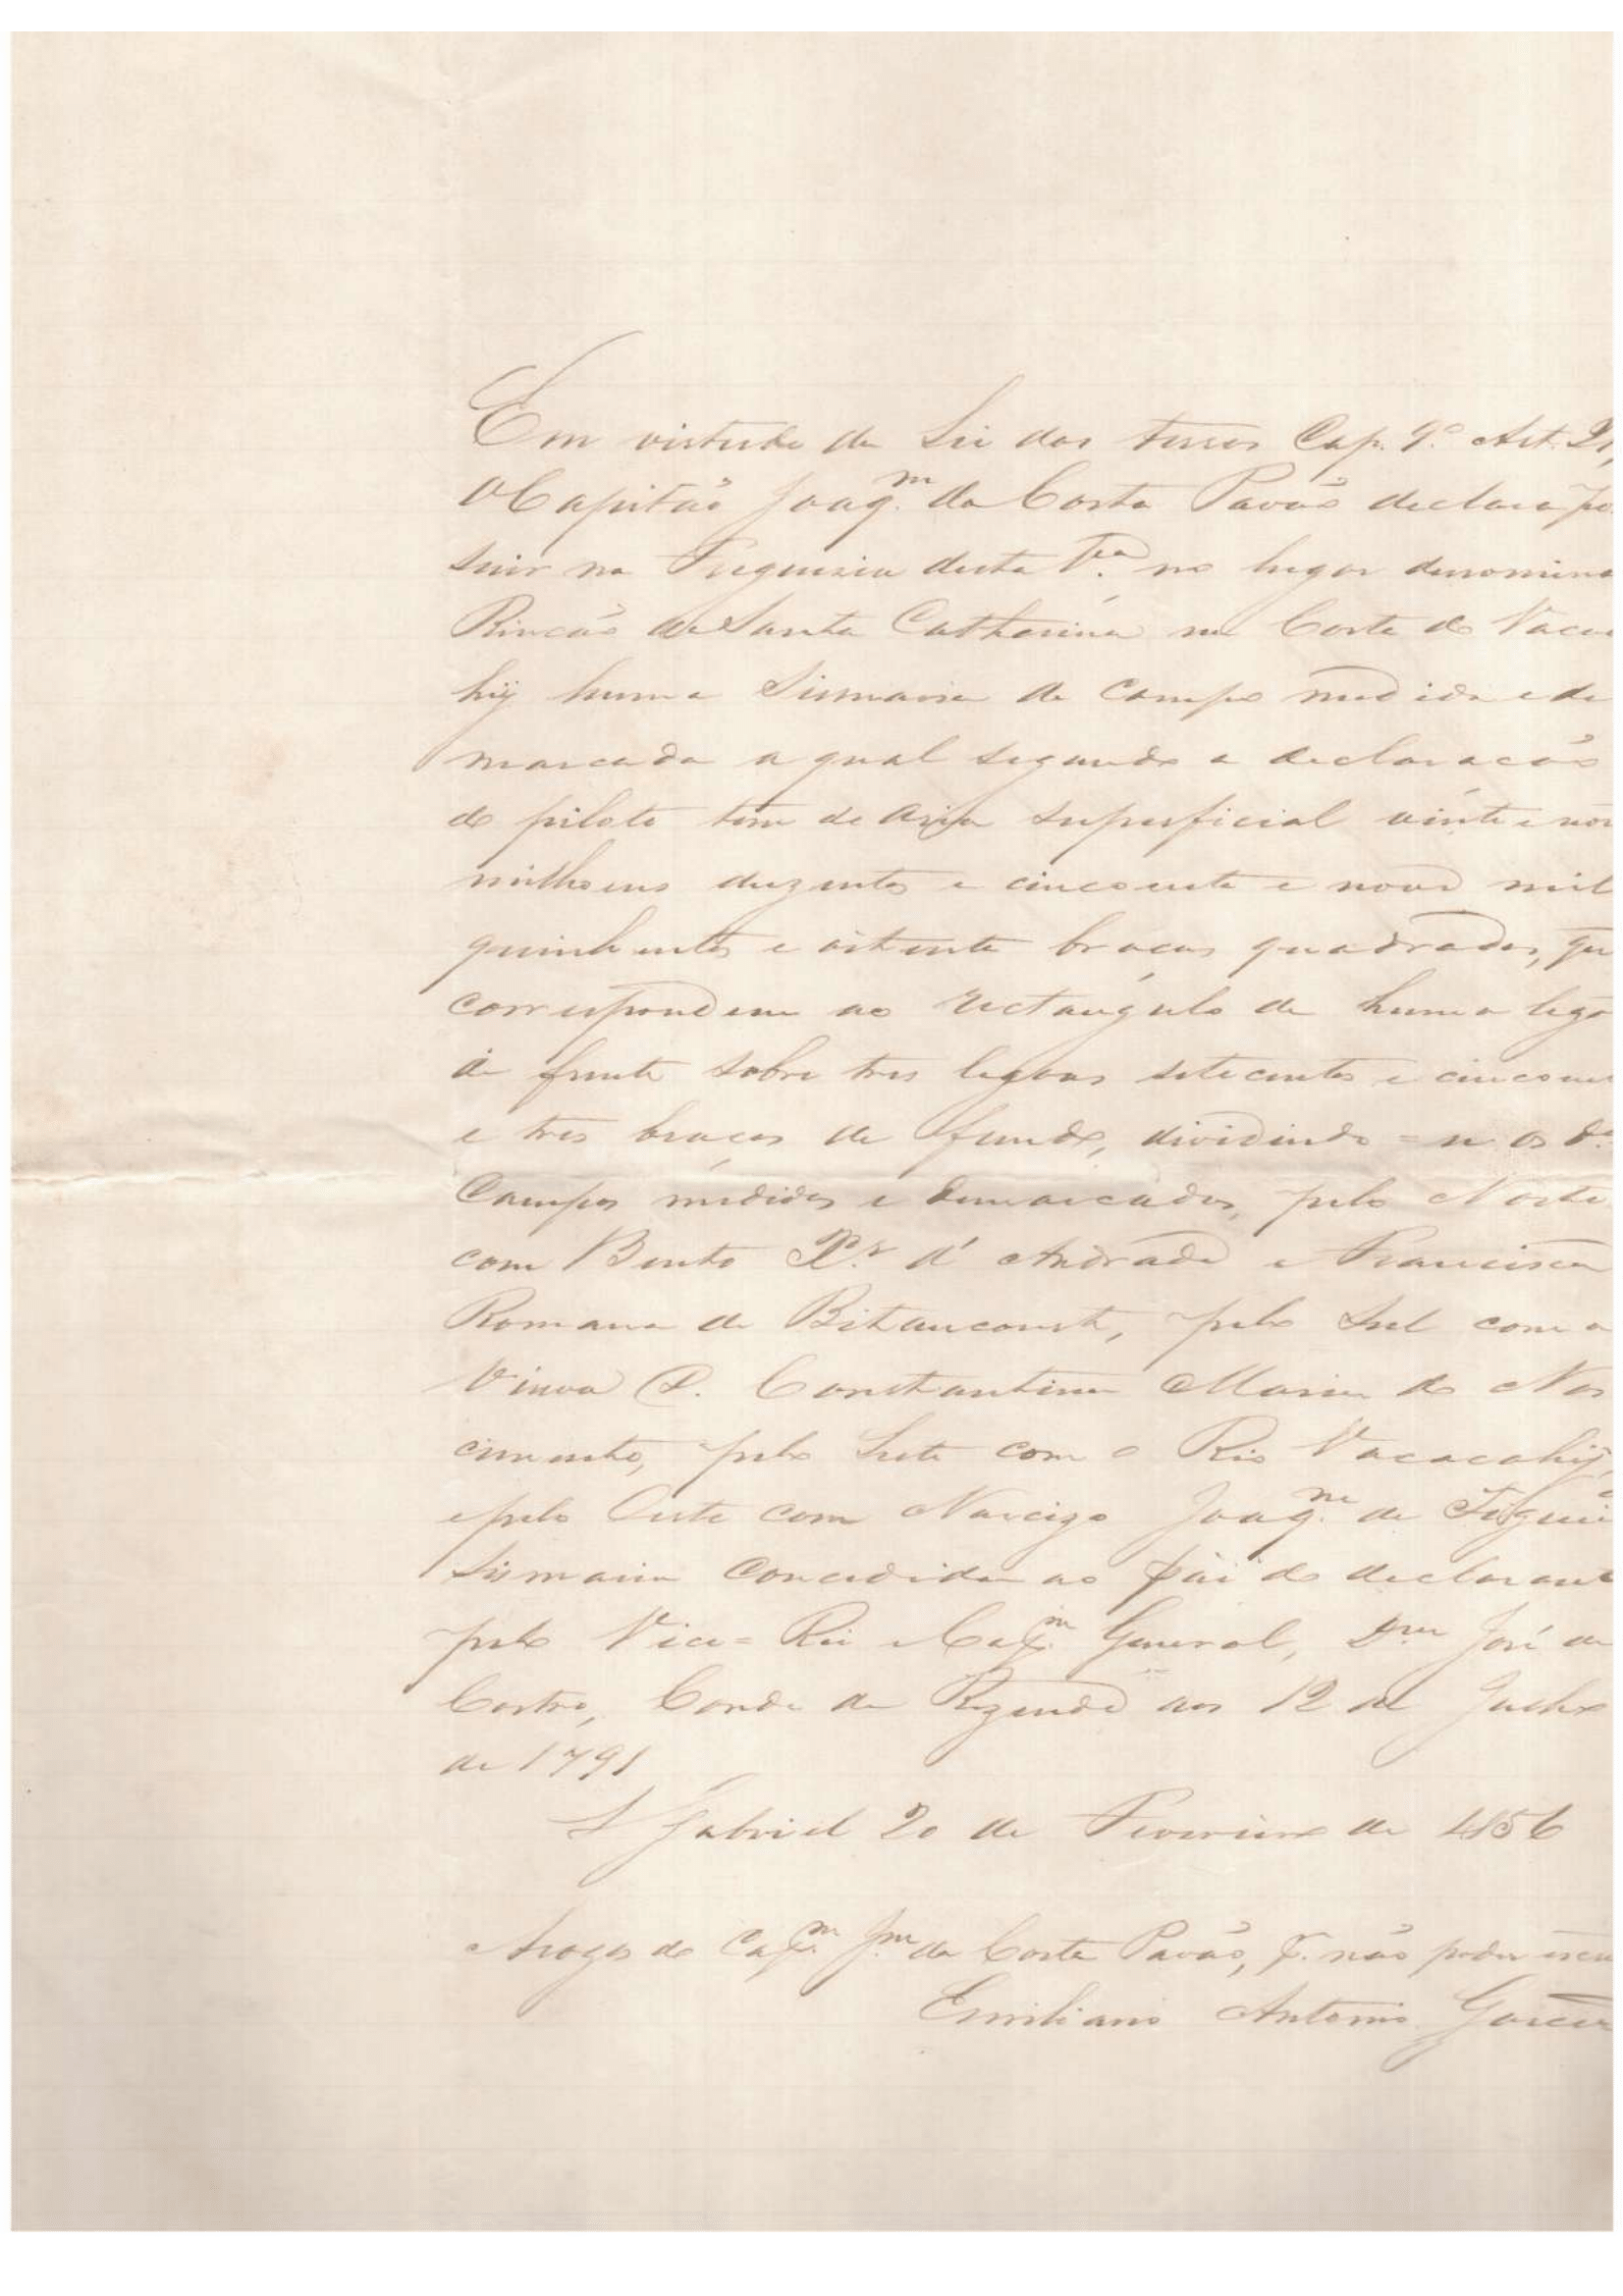 Em virtude da Lei das terras Cap. 9.º Art. 91,
O Capitaõ Joaq.m da Costa Pavaõ declara po
suir na Freguezia desta V.ª no lugar denomina
Rincaõ de Santa Catharina na Costa do Vaca
hÿ huma Sismaria de Campo medida e de
marcada a qual segundo a declaracaõ
do piloto tem de aria superficial vinte e nov
milhoens duzentos e cincoenta e nove mil
quinhentos e oitenta bracas quadradas, qu
correspondem ao rectangulo de huma lego
de frente sobre tres legoas setecentos e cincoen
e tres bracas de fundo, dividindo=se os d.os
Campos medidos e demarcados, pelo Norte
com Bento R.s d'Andrade e Francisca
Romana de Bitancourt, pelo Sul com a
Viuva D. Constantina Maria do Nas
cimento, pelo Leste com o Rio Vacacahÿ,
e pelo Oeste com Narcizo Joaq.m de Figuei
Sismaria concedida ao pai do declarant
pelo Vice=Rei e Cap.m General, Dom José de
Castro, Conde de Rezende aos 12 de Julho
de 1791
S Gabriel 20 de Fevereiro de 1856
Arogo do Cap.m J.m da Costa Pavaõ, p. naõ poder escre
Emiliano Antonio Garcia